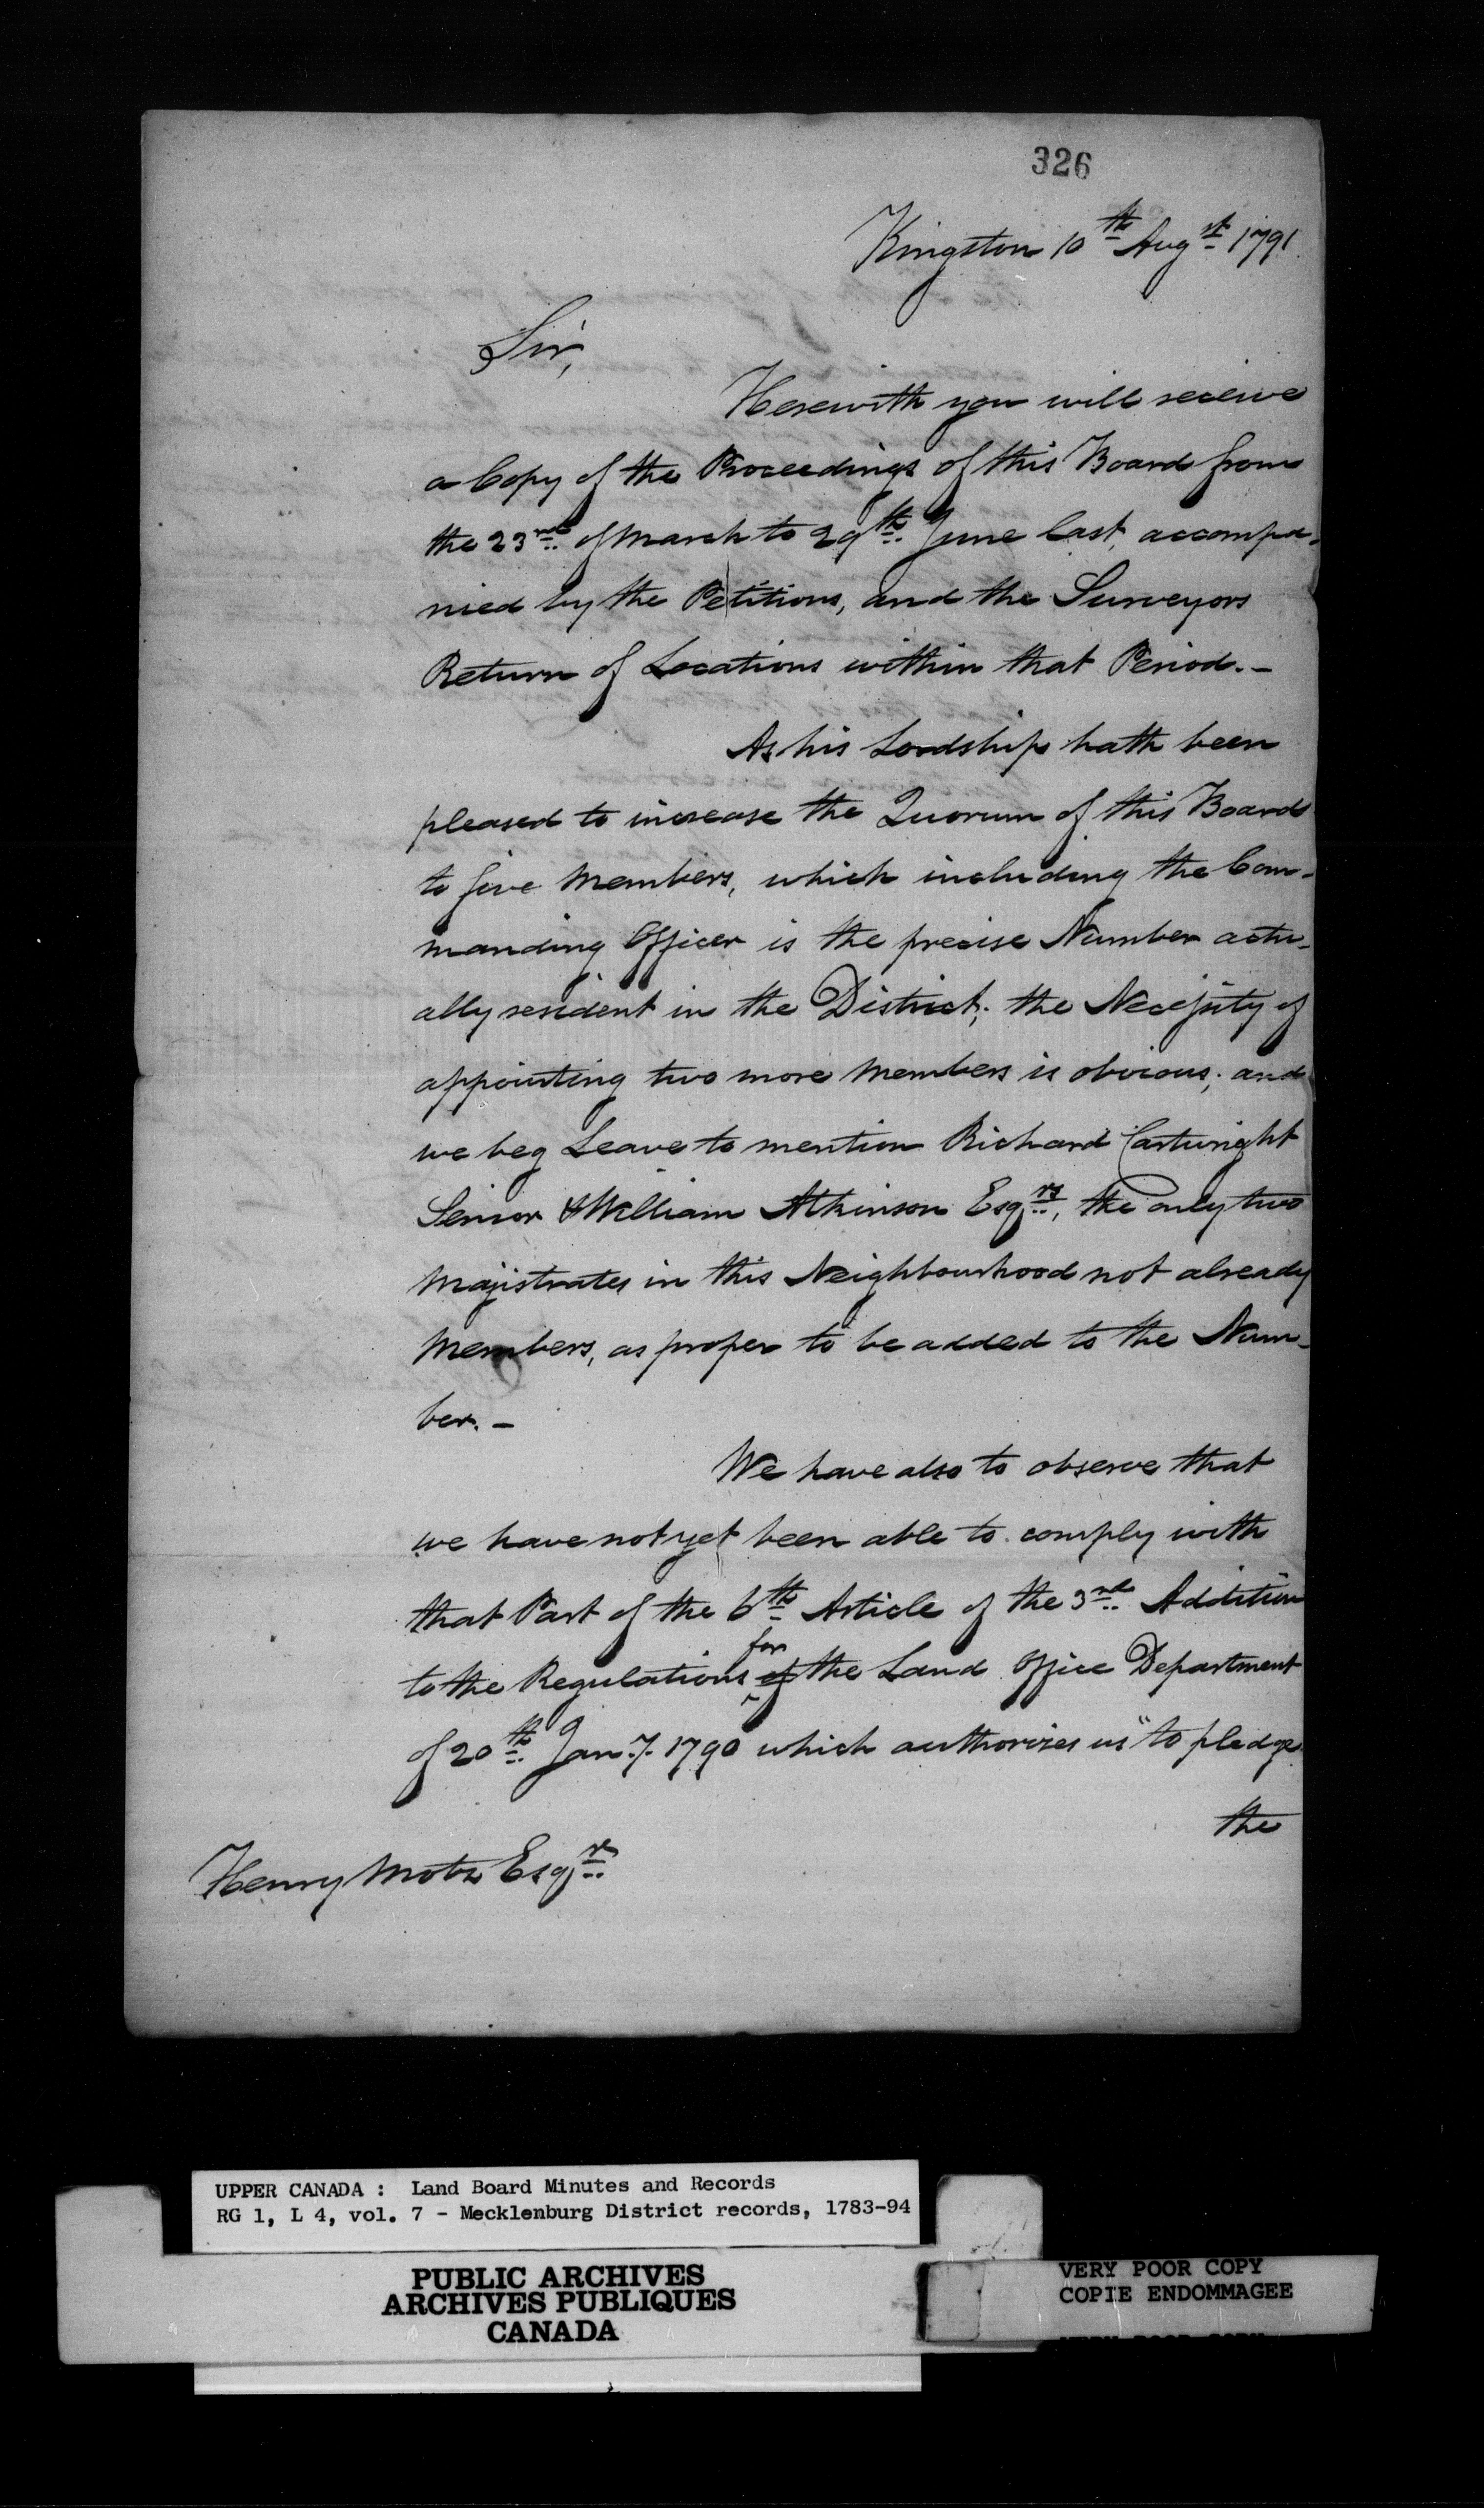 326
Kingston 10th Augst 1791
Sir,
Herewith you will receive
a Copy of the Proceedings of this Board from
the 23rd of March to 29th June last, accompa-
nied by the Petitions, and the Surveyors
Return of Locations within that Period.-
As his Lordship hath been
pleased to increase the Quorum of this Board
to five Members, which including the Com-
manding Officer is the precise Number actu-
ally resident in the District; the Necessity of
appointing two more Members is obvious; and
we beg Leave to mention Richard Cartwright
Senior & William Atkinson Esqrs, the only two
Majistrates in this Neighbourhood not already
Members, as proper to be added to the Num-
ber.-
We have also to observe that
we have not yet been able to comply with
that Part of the 6th Article of the 3rd Addition
to the Regulations for of the Land Office Department
of 20th Jany. 1790 which authorizes us "to pledge
the
Henry Motz Esqr
UPPER CANADA : Land Board Minutes and Records
RG 1, L 4, vol. 7 - Mecklenburg District records, 1783-94
PUBLIC ARCHIVES
ARCHIVES PUBLIQUES
CANADA
VERY POOR COPY
COPIE ENDOMMAGEE
VERY POOR COPY